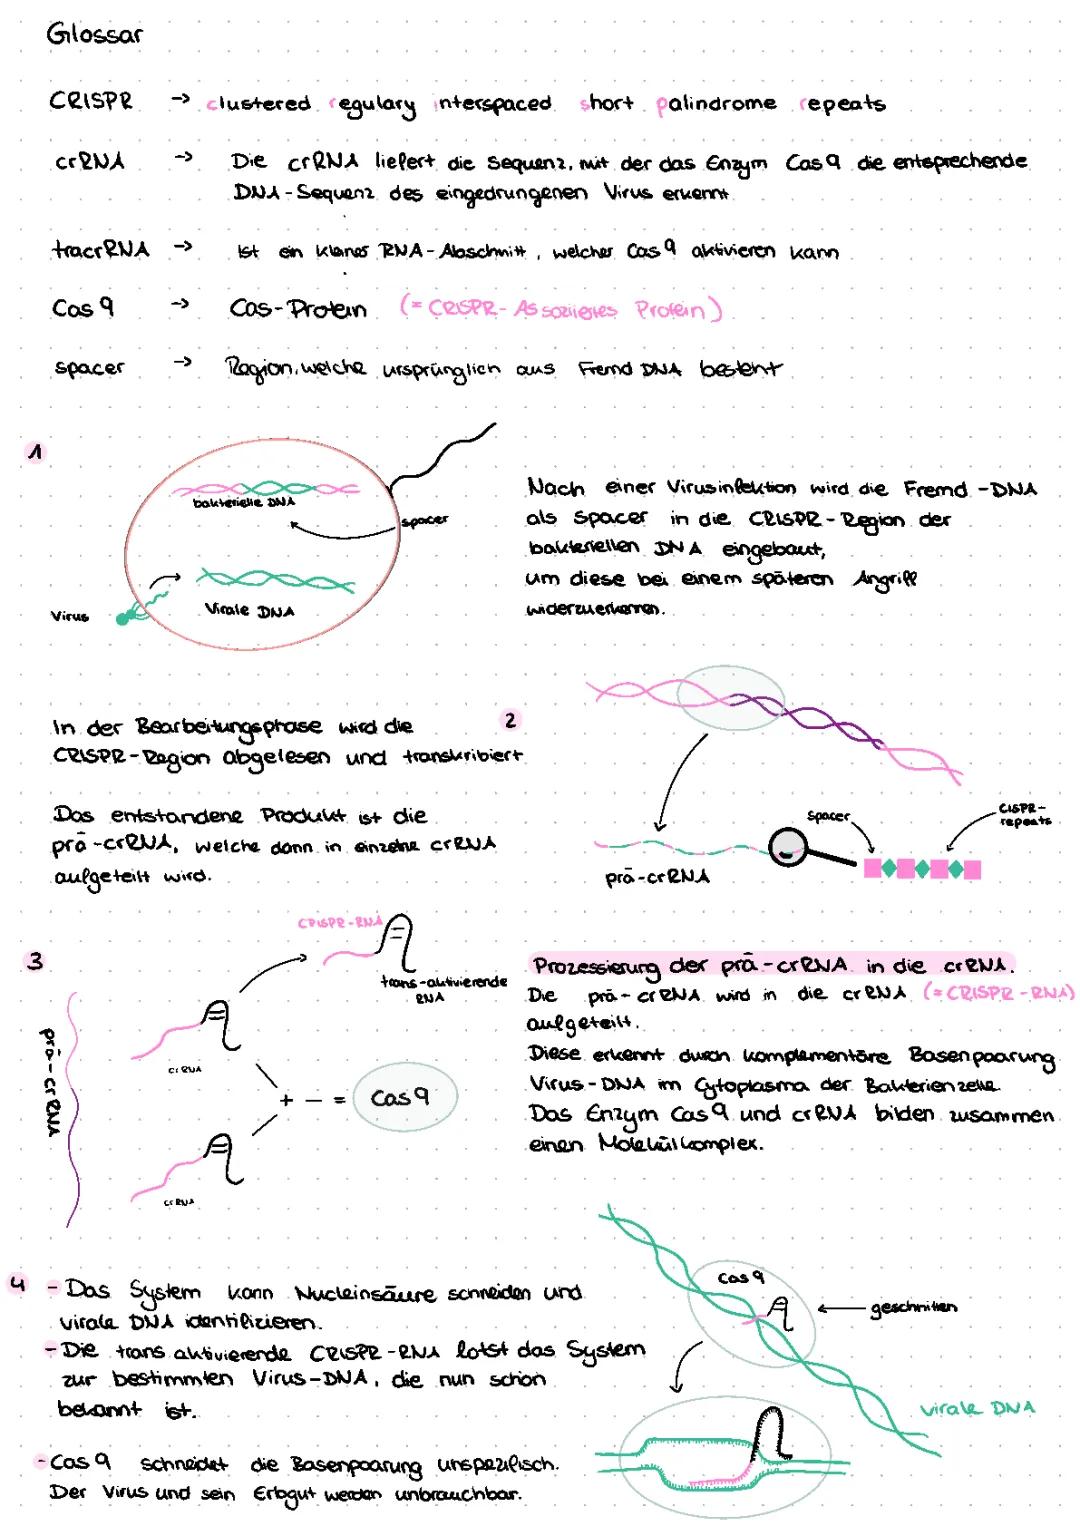 Glossar
CRISPR → clustered regulary interspaced short palindrome repeats
crRNA → Die crRNA liefert die Sequenz, mit der das Enzym Cas9 die entsprechende
DNA-Sequenz des eingedrungenen Virus erkennt
tracrRNA → Ist ein kleines RNA-Abschnitt, welcher Cas9 aktivieren kann
Cas9 → Cas-Protein (= CRISPR-Assoziiertes Protein)
spacer → Region, welche ursprünglich aus Fremd DNA besteht
1
bakterielle DNA
spacer
Virale DNA
Virus
Nach einer Virusinfektion wird die Fremd-DNA
als spacer in die CRISPR-Region der
bakteriellen DNA eingebaut,
um diese bei einem späteren Angriff
widerzuerkennen.
In der Bearbeitungsphase wird die
CRISPR-Region abgelesen und transkribiert
Das entstandene Produkt ist die
prä-crRNA, welche dann in einzelne crRNA
aufgeteilt wird.
2
spacer
CISPR-
repeats
prä-crRNA
3
prä-crRNA
CRISPR-RNA
trans-aktivierende
RNA
crRNA
+ - = Cas9
crRNA
Prozessierung der prä-crRNA in die crRNA.
Die prä-crRNA wird in die crRNA (=CRISPR-RNA)
aufgeteilt.
Diese erkennt durch komplementäre Basenpaarung
Virus-DNA im Cytoplasma der Bakterienzelle.
Das Enzym Cas9 und crRNA bilden zusammen
einen Molekülkomplex.
4
- Das System kann Nucleinsäure schneiden und
virale DNA identifizieren.
- Die trans aktivierende CRISPR-RNA lotst das System
zur bestimmten Virus-DNA, die nun schon
bekannt ist.
- Cas9 schneidet die Basenpaarung unspezifisch.
Der Virus und sein Erbgut werden unbrauchbar.
Cas9
geschnitten
virale DNA